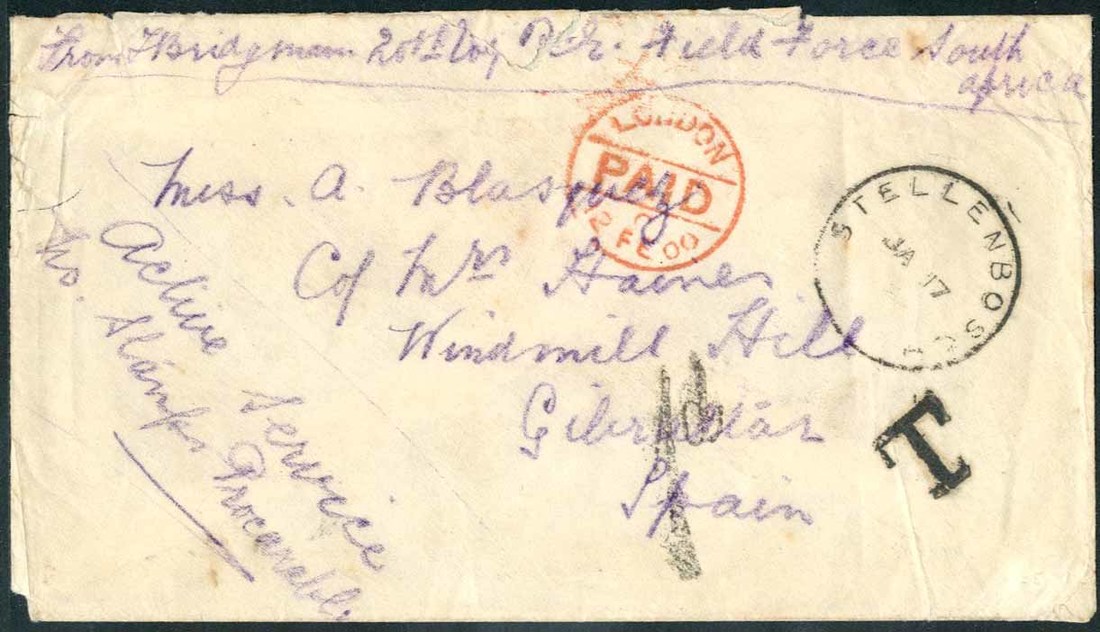 From F Bridgman 20th Coy R.E. Field Force South
africa
LONDON
PAID
12 FE 00
Miss. A. Blasquez
C/o Mrs Haines
Windmill Hill
Gibraltar
Spain
Active Service
No. Stamps Procurable
STELLENBOSCH
JA 17
T
1d